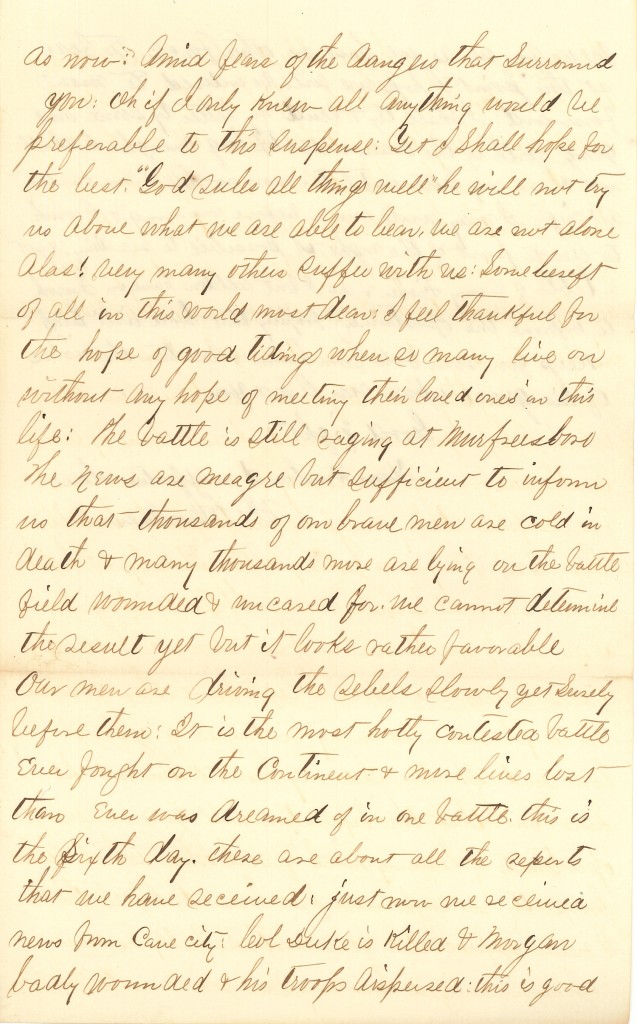 as now? Amid fears of the dangers that Surround
you: Oh if I only knew all anything would be
preferable to this suspense: Yet I shall hope for
the best. "God rules all things well" he will not try
us above what we are able to bear. we are not alone
Alas! very many others suffer with us: Some bereft
of all in this world most dear: I feel thankful for
the hope of good tidings when so many live on
without any hope of meeting their loved ones in this
life: the battle is still raging at Murfreesboro
The News are meagre but sufficient to inform
us that thousands of our brave men are cold in
death & many thousands more are lying on the battle
field wounded & uncared for. we cannot determine
the result yet but it looks rather favorable
Our men are driving the rebels slowly yet Surely
before them: It is the most hotly contested battle
Ever fought on the Continent & more lives lost
than Ever was dreamed of in one battle. this is
the Sixth day. these are about all the reports
that we have received: just now we received
news from Cave city: Col Duke is Killed & Morgan
badly wounded & his troops dispersed: this is good